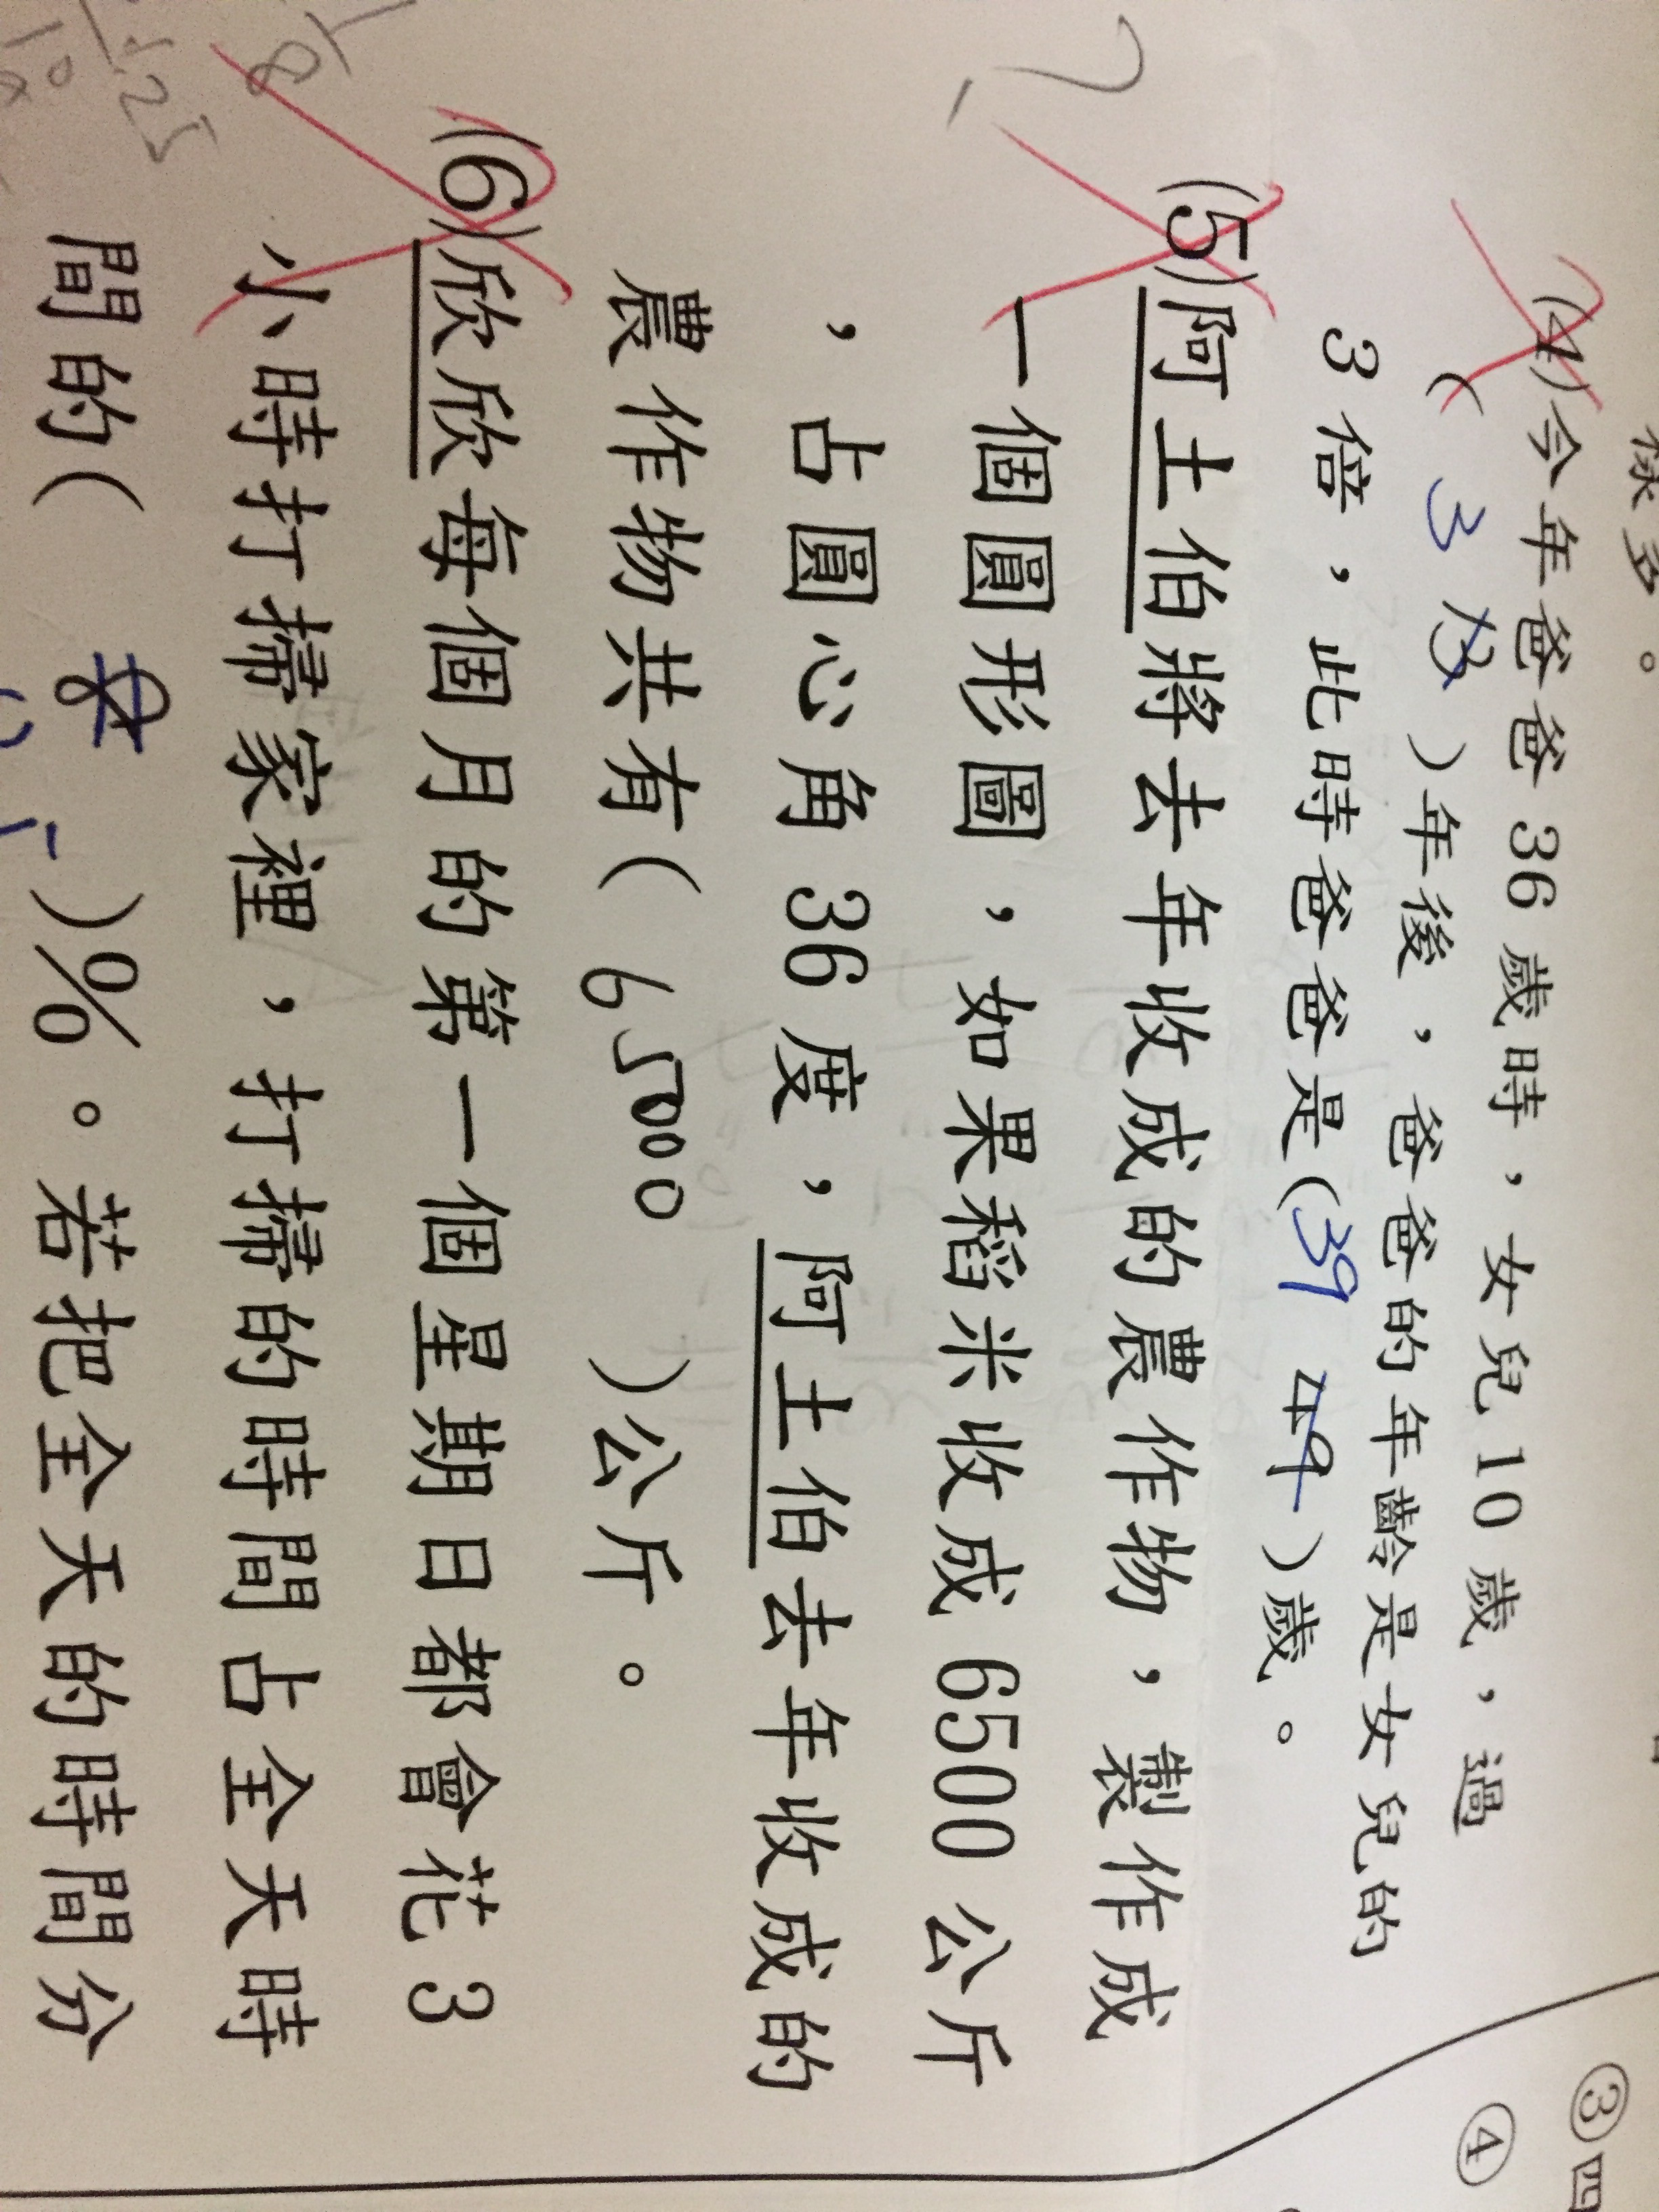 樣多。
(4)今年爸爸 36 歲時，女兒 10 歲，過
( 3 13 )年後，爸爸的年齡是女兒的
3 倍，此時爸爸是( 39 49 )歲。
(5)阿土伯將去年收成的農作物，製作成
一個圓形圖，如果稻米收成 6500 公斤
，占圓心角 36 度，阿土伯去年收成的
農作物共有( 65000 )公斤。
(6)欣欣每個月的第一個星期日都會花 3
小時打掃家裡，打掃的時間占全天時
間的( )%。若把全天的時間分
③四
④